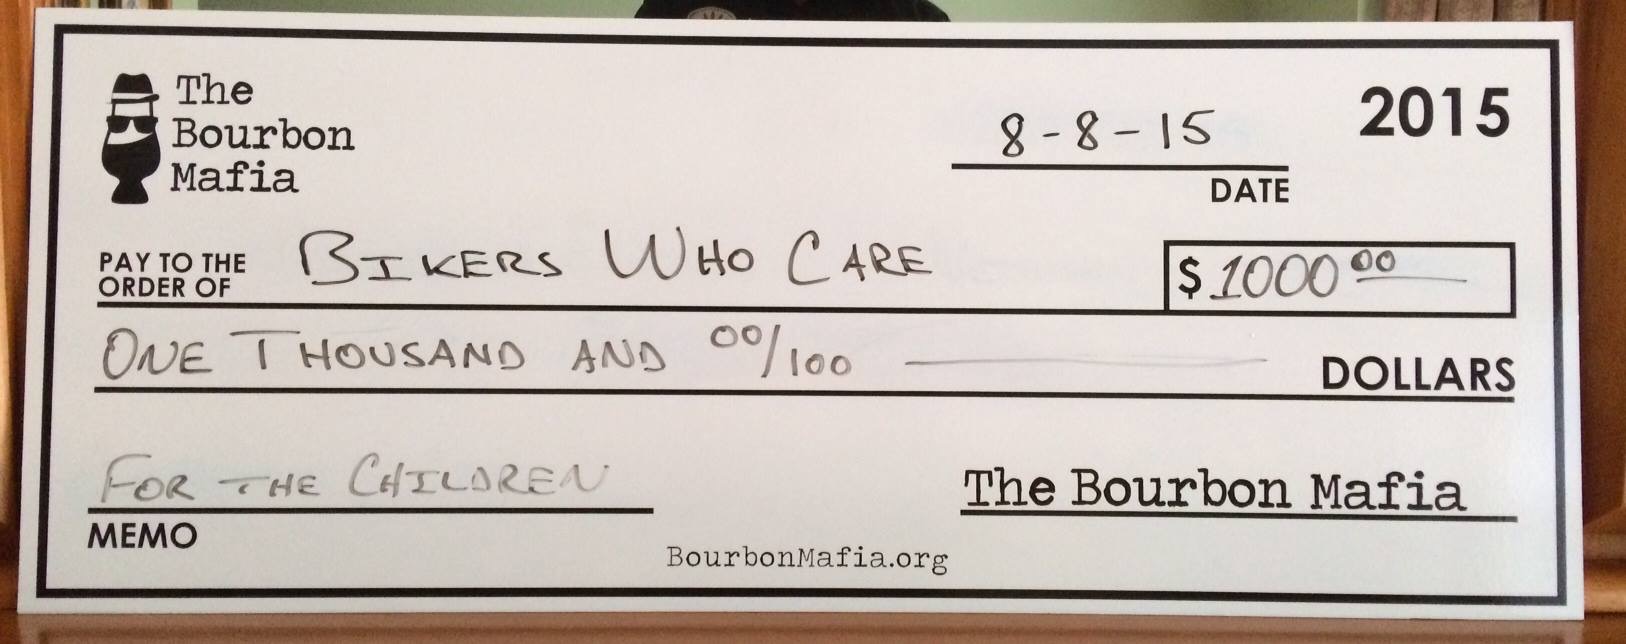 The
Bourbon
Mafia
2015
8-8-15
DATE
PAY TO THE
ORDER OF
BIKERS WHO CARE
$ 1000 00
ONE THOUSAND AND 00/100
DOLLARS
FOR THE CHILDREN
MEMO
The Bourbon Mafia
BourbonMafia.org